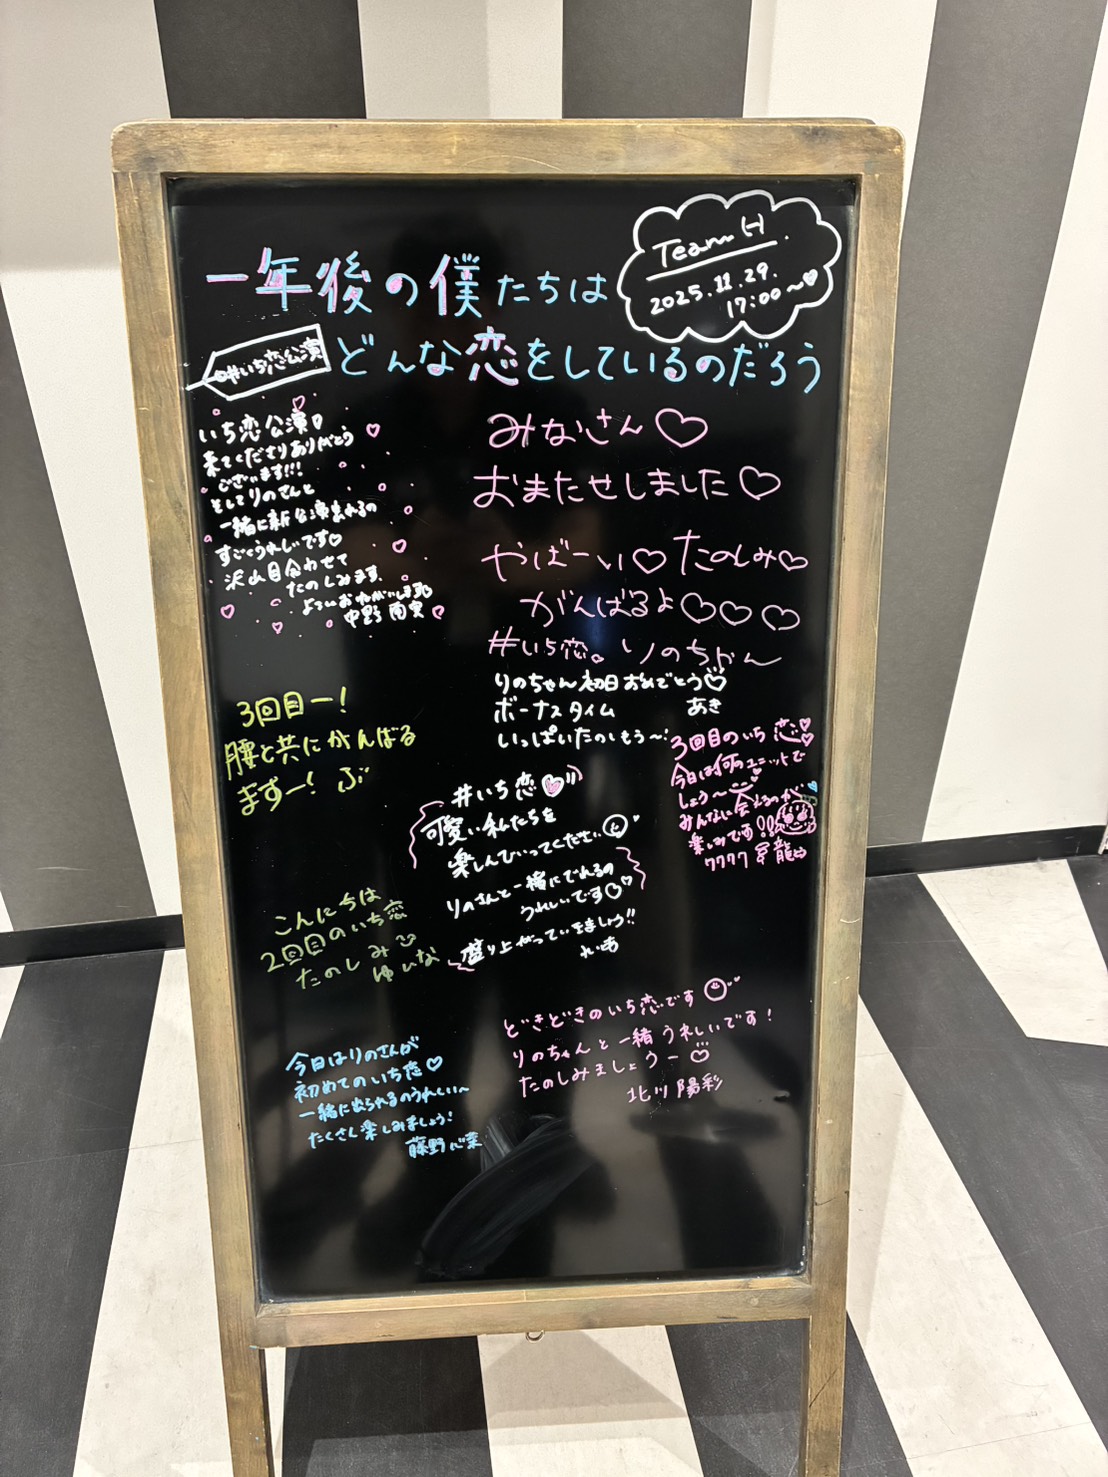 Team H.
2025.11.29.
17:00～♡
一年後の僕たちは
どんな恋をしているのだろう
#いち恋公演
いち恋公演♡
来てくださりありがとう
ございます!!!
そしてりのさんと
一緒に新公演出れるの
すごくうれしいです♡
沢山目合わせて
たのしみます
よろしくおねがいします♡
中野 南実
みなさん♡
おまたせしました♡
やばーい♡たのしみ♡
がんばるよ♡♡♡
#いち恋。りのちゃん
りのちゃん初日おめでとう♡
ボーナスタイム あき
いっぱいたのしもう〜!
3回目ー!
腰と共にがんばる
ますー! ぶ
3回目のいち恋♡
今日は何のユニットで
しょう〜
みんなに会えるのが
楽しみです!!
#いち恋♡
可愛い私たちを
楽しんでいってください
りのさんと一緒にでれるの
うれしいです♡
盛り上がっていきましょう!!
れいあ
こんにちは
2回目のいち恋
たのしみ
ゆいな
どきどきのいち恋です
りのちゃんと一緒うれしいです!
たのしみましょうー♡
北川 陽彩
今日はりのさんが
初めてのいち恋♡
一緒に出られるのうれしい〜
たくさん楽しみましょう!
藤野心菜